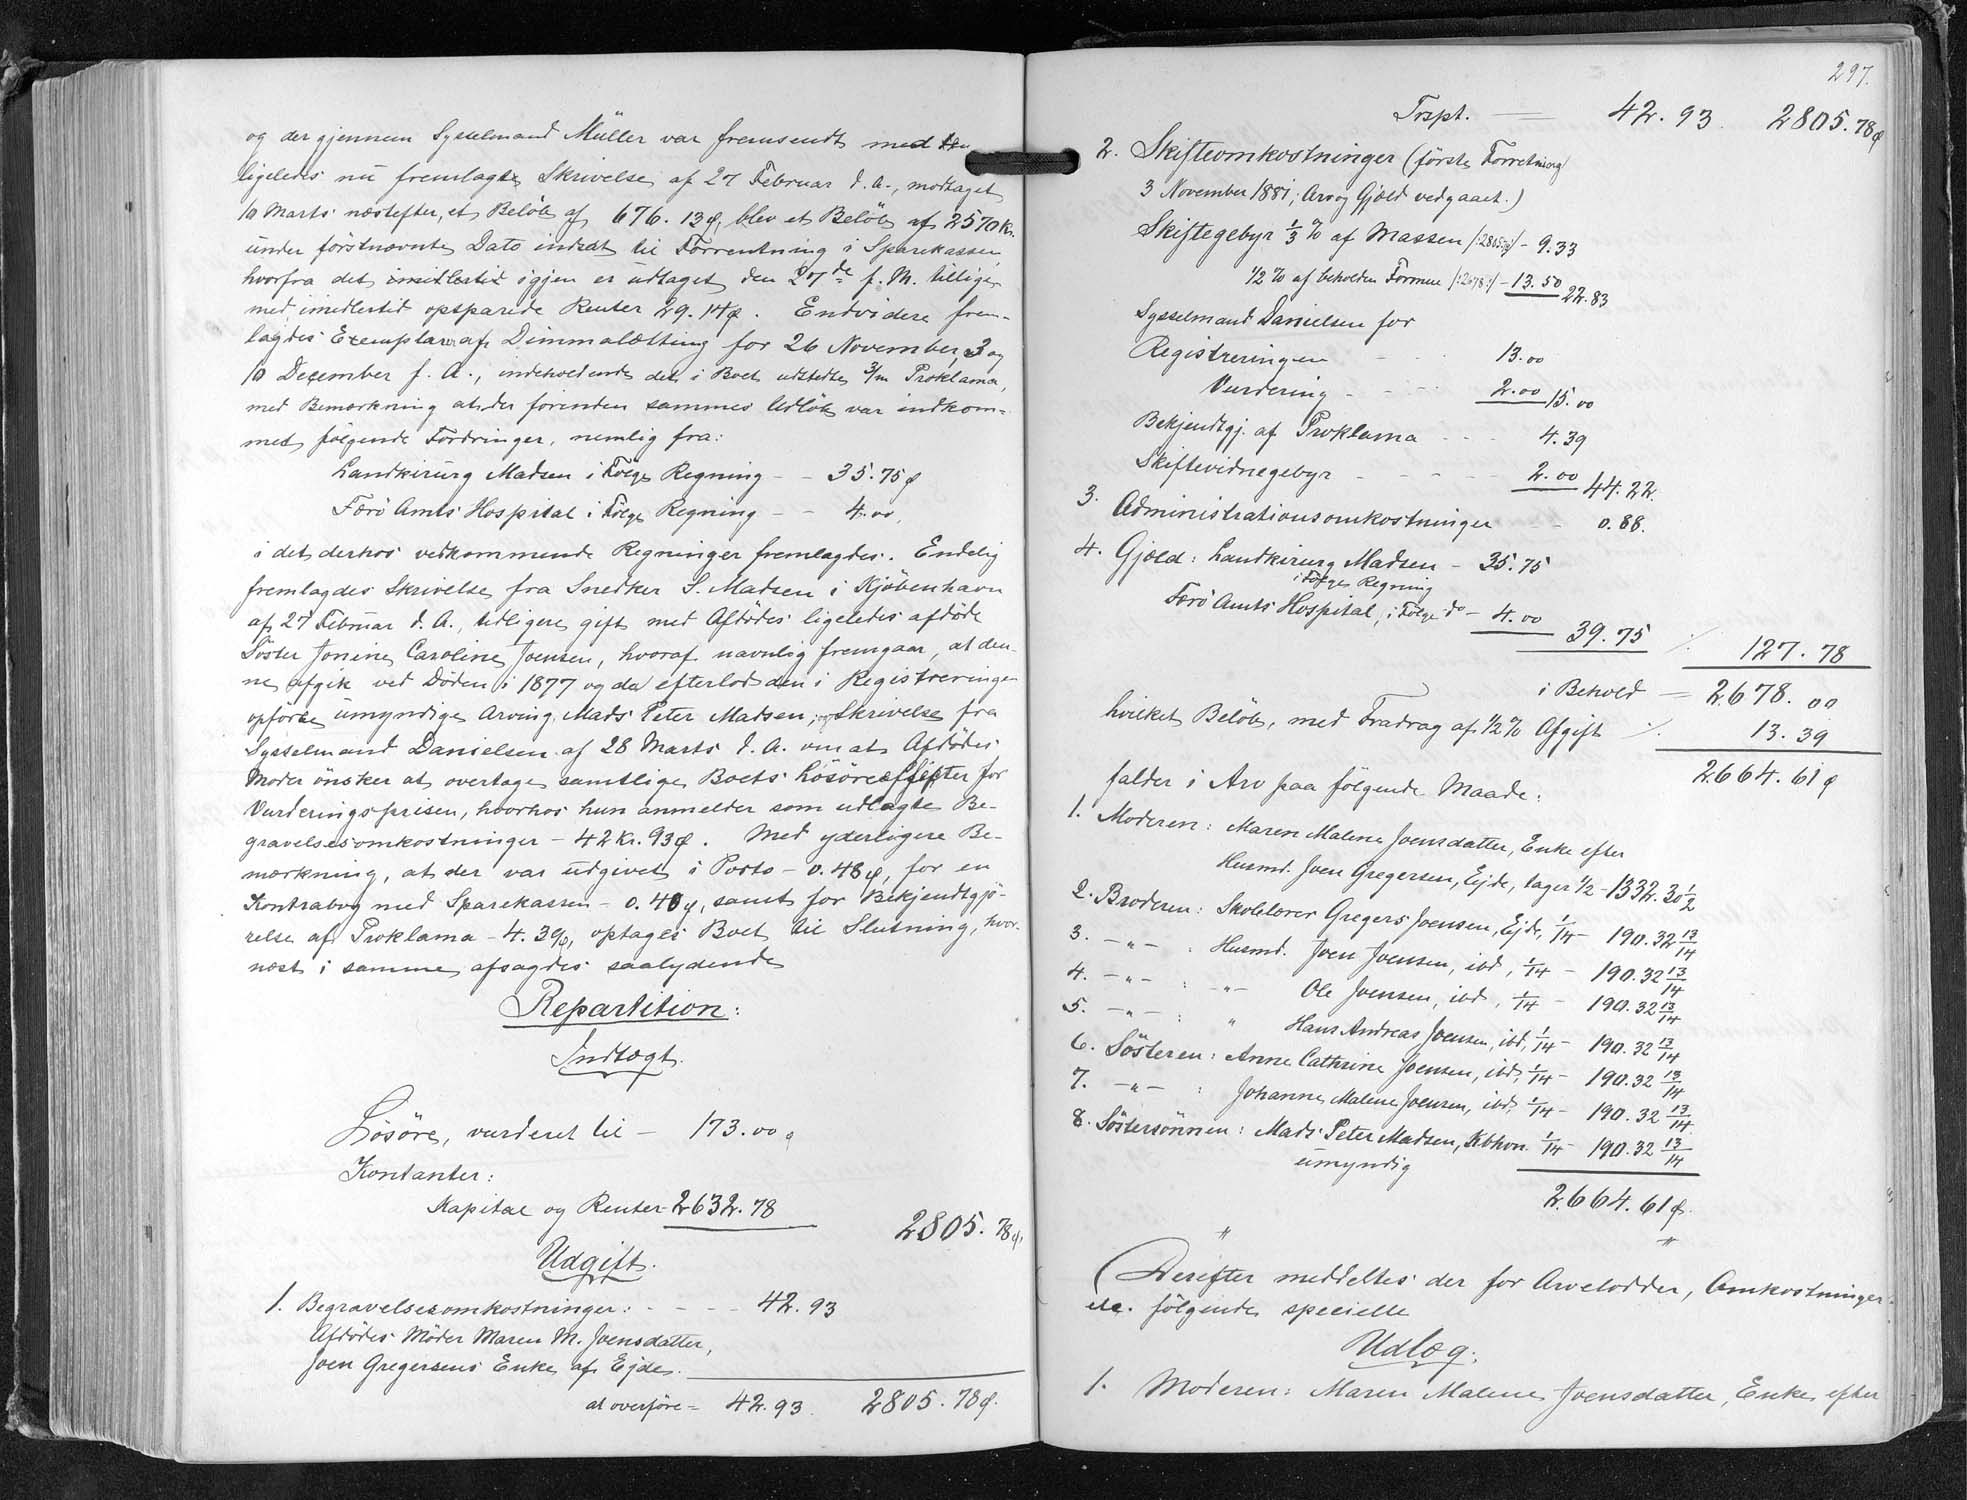 og der gjennem Sysselmand Müller var fremsendt med den
ligeledes nu fremlagte Skrivelse af 27 Februar d. A., modtaget
10 Marts næstefter, et Beløb af 676. 13 ø, blev et Beløb af 2570 Kr.
under førstnævnte Dato indsat til Forrentning i Sparekassen,
hvorfra det imidlertid igjen er udtaget den 27de f. M. tillige
med imidlertid opsparede Renter 29. 14 ø. Endvidere frem-
lagdes Exemplarer af Dimmalætting for 26 November, 3 og
10 December f. A., indeholdende det i Boet udstedte 3/m Proklama,
med Bemærkning at der forenden sammes Udløb var indkom-
met følgende Fordringer, nemlig fra:
Landkirurg Madsen i Følge Regning - - 35. 75 ø
Færö Amts Hospital i Følge Regning - - 4. 00,
i det derhos vedkommende Regninger fremlagdes. Endelig
fremlagdes Skrivelse fra Snedker S. Madsen i Kjöbenhavn
af 27 Februar d. A., tidligere gift med Afdødes ligeledes afdøde
Søster Jonine Caroline Joensen, hvoraf navnlig fremgaar, at den-
ne afgik ved Døden i 1877 og da efterlod den i Registreringen
opførte umyndige Arving, Mads Peter Madsen; og Skrivelse fra
Sysselmand Danielsen af 28 Marts d. A. om at Afdødes
Moder ønsker at overtage samtlige Boets Løsøreeffekter for
Vurderingsprisen, hvorhos hun anmelder som udlagte Be-
gravelsesomkostninger - 42 Kr. 93 ø. Med yderligere Be-
mærkning, at der var udgivet i Porto - 0. 48 ø, for en
Kontrabog med Sparekassen - 0. 40 ø, samt for Bekjendtgjö-
relse af Proklama - 4. 39, optages Boet til Slutning, hvor-
næst i samme afsagdes saalydende
Repartition:
Indtægt.
Løsøre, vurderet til - 173. 00 ø
Kontanter:
Kapital og Renter - 2632. 78
2805. 78 ø,
Udgift.
1. Begravelsesomkostninger: - - - - 42. 93
Afdødes Moder Maren M. Joensdatter,
Joen Gregersens Enke af Ejde.
at overføre = 42. 93. 2805. 78 ø.
297.
Trspt. — 42. 93. 2805. 78 ø
2. Skifteomkostninger (første Forretning
3 November 1881; Arv og Gjæld vedgaaet.)
Skiftegebyr 1/3 % af Massen /:2805.78:/ - 9. 33
1/2 % af beholden Formue /:2678:/ - 13. 50 22. 83
Sysselmand Danielsen for
Registreringen - - 13. 00
Vurdering - - - 2. 00 15. 00
Bekjendtgj. af Proklama - - - 4. 39
Skiftevidnegebyr - - - - 2. 00 44. 22.
3. Administrationsomkostninger - - 0. 88.
4. Gjæld: Landkirurg Madsen - 35. 75
i Følge Regning
Færö Amts Hospital, i Følge do - 4. 00
39. 75 ./. 127. 78
i Behold = 2678. 00
hvilket Beløb, med Fradrag af 1/2 % Afgift ./. 13. 39
2664. 61 ø
falder i Arv paa følgende Maade:
1. Moderen: Maren Malene Joensdatter, Enke efter
Husmd. Joen Gregersen, Ejde, tager 1/2 - 1332. 30 1/2
2. Broderen: Skolelærer Gregers Joensen, Ejde, 1/14 - 190. 32 13/14
3. - " - : Husmd. Joen Joensen, ibd, 1/14 - 190. 32 13/14
4. - " - : - " - Ole Joensen, ibd, 1/14 - 190. 32 13/14
5. - " - : " Hans Andreas Joensen, ibd, 1/14 - 190. 32 13/14
6. Søsteren: Anne Cathrine Joensen, ibd, 1/14 - 190. 32 13/14
7. - " - : Johanne Malene Joensen, ibd, 1/14 - 190. 32 13/14
8. Søstersønnen: Mads Peter Madsen, Kbhvn. 1/14 - 190. 32 13/14
umyndig
2664. 61 ø.
" "
Derefter meddeltes der for Arvelodder, Omkostninger
etc. følgende specielle
Udlæg:
1. Moderen: Maren Malene Joensdatter, Enke efter